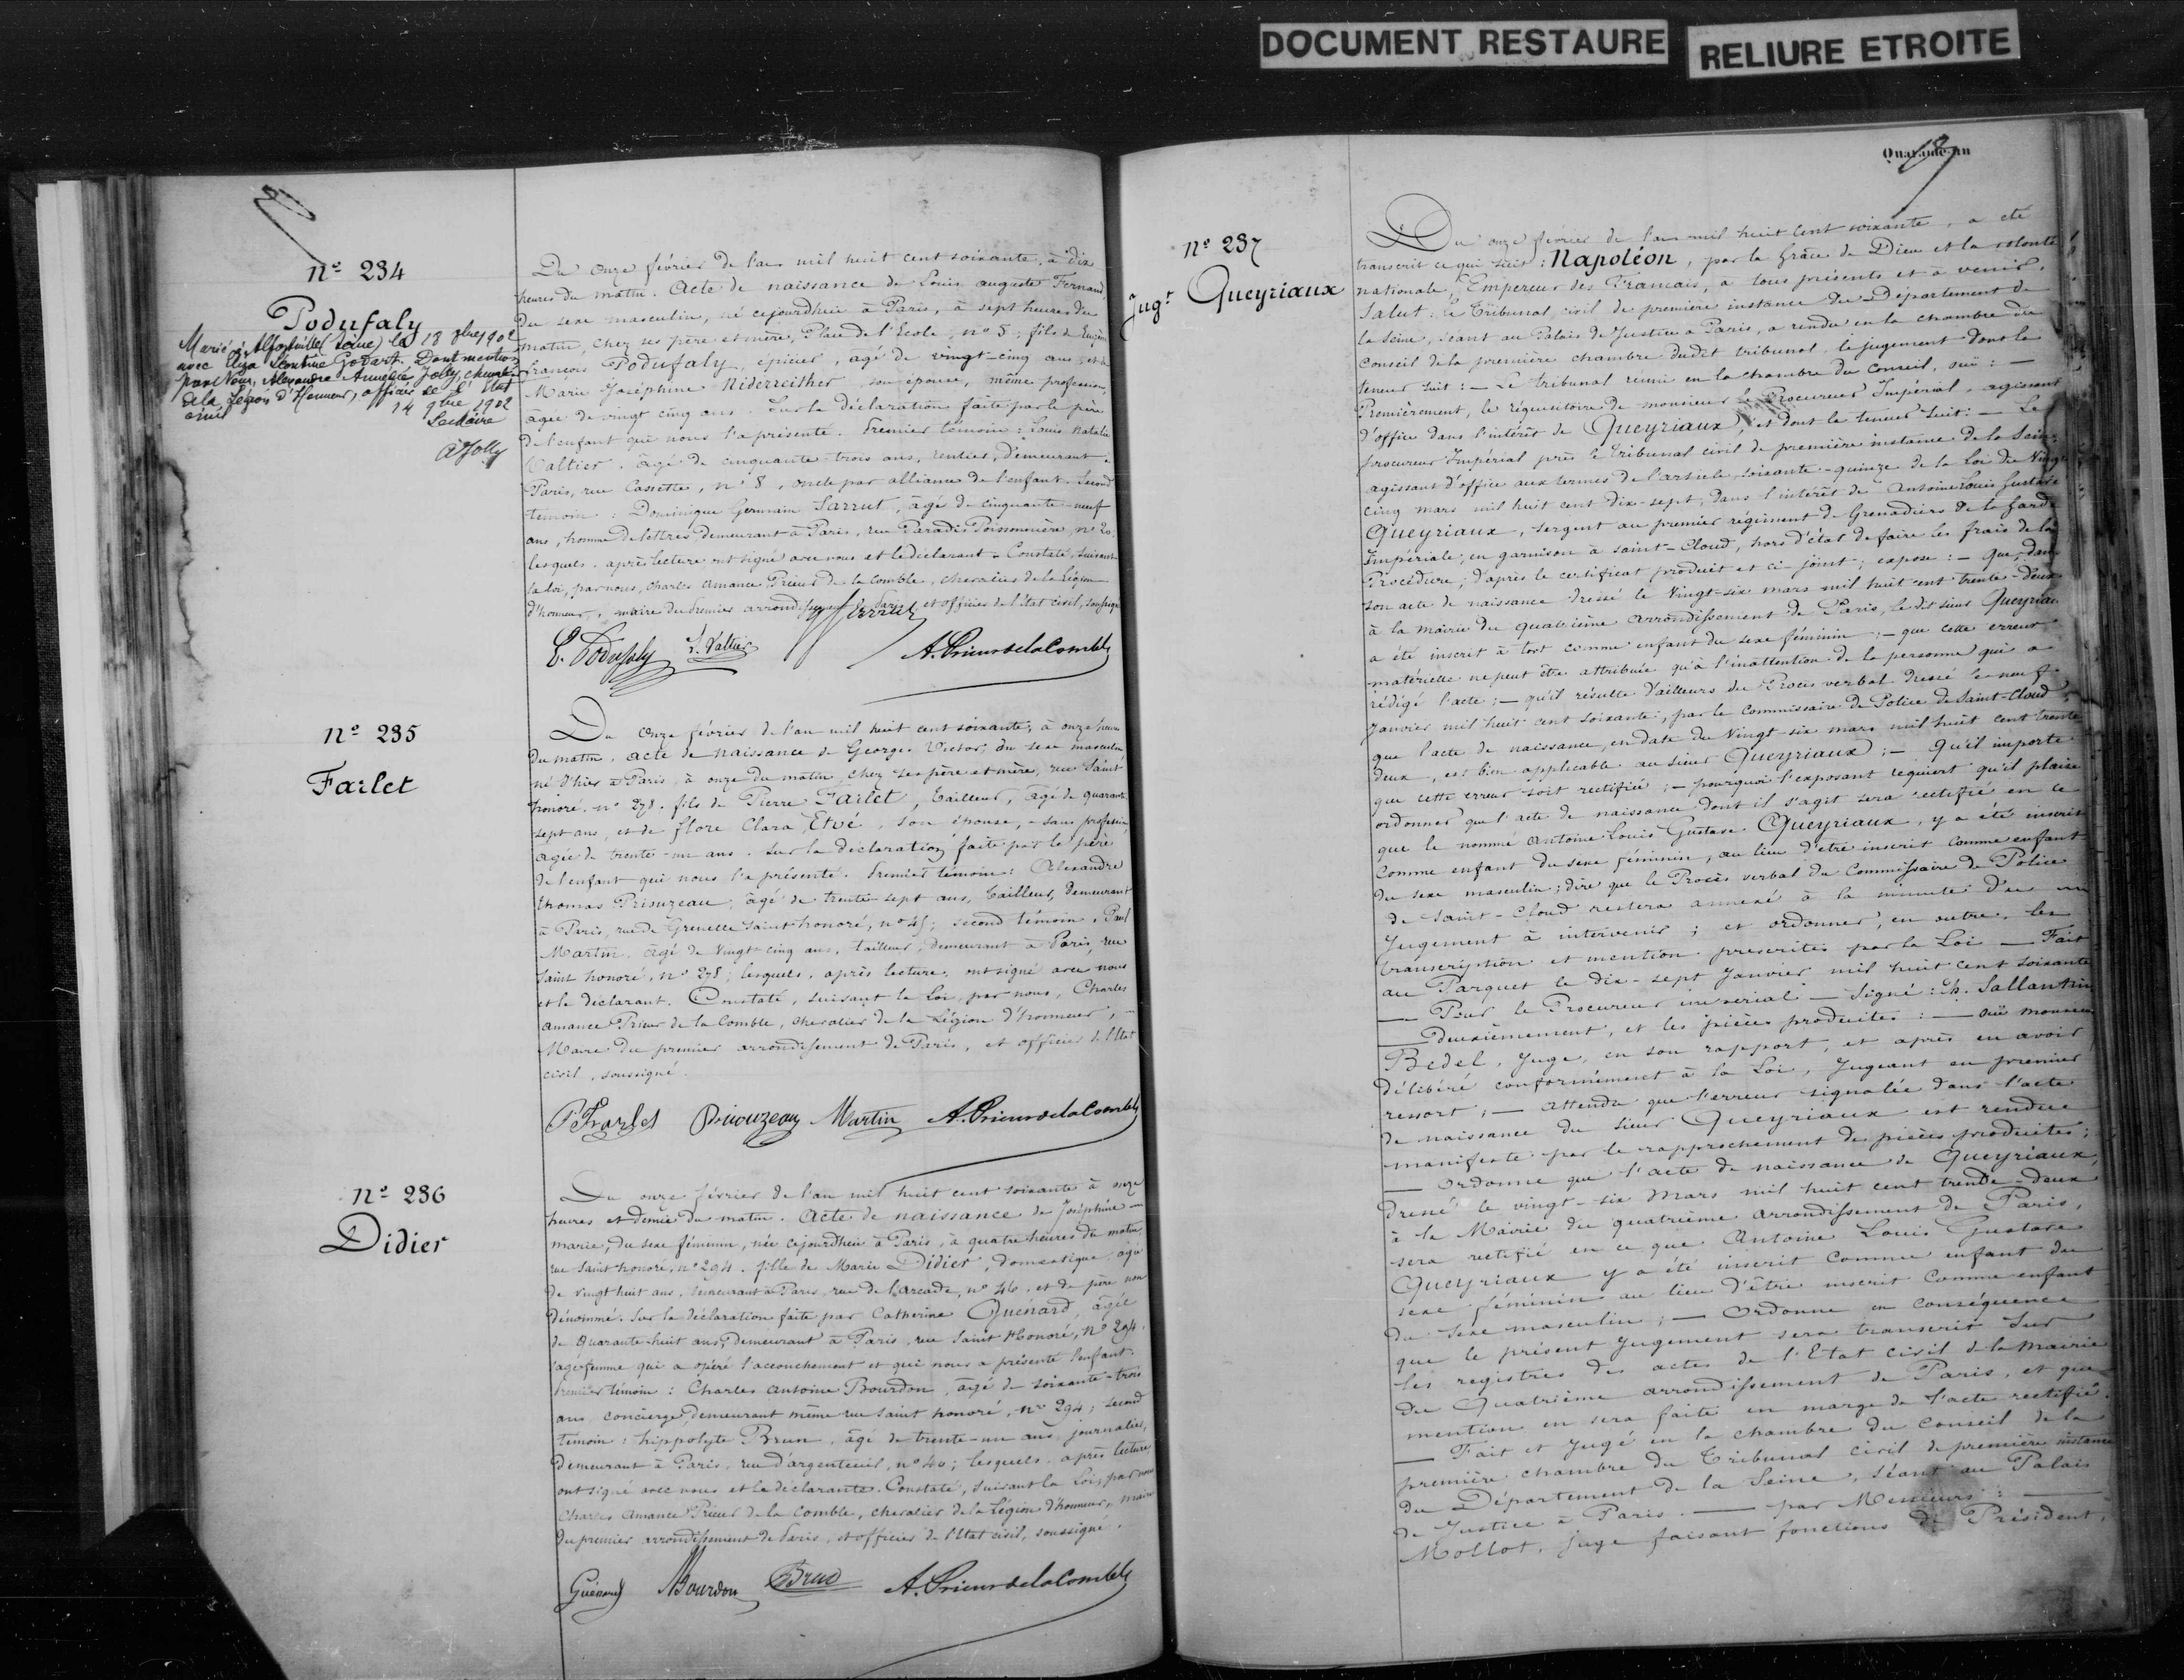 DOCUMENT RESTAURE
RELIURE ETROITE
nº 234
Podufaly
Marié à Alfortville (Seine) le 18 8bre 1902
avec Eliza Léontine Godart. Dont mention
par Nous, Alexandre Amédée Jolly, chevalier
de la Légion d'Honneur, officier de l'Etat
civil
14 9bre 1902
Le Maire
A Jolly
Du onze février de l'an mil huit cent soixante, à dix
heures du matin. Acte de naissance de Louis auguste Fernand,
du sexe masculin, né cejourdhui à Paris, à sept heures du
matin, chez ses père et mère, Place de l'Ecole, nº 5; fils de Eugène
françois Podufaly, épicier, agé de vingt-cinq ans, et de
Marie Joséphine Niderreither, son épouse, même profession,
âgée de vingt cinq ans. Sur la déclaration faite par le père
de l'enfant qui nous l'a présenté. Premier témoin: Louis Natalie
Valtier, âgé de cinquante-trois ans, rentier, demeurant à
Paris, rue Cassette, nº 8, oncle par alliance de l'enfant. Second
témoin: Dominique Germain Sarrut, âgé de cinquante-neuf
ans, homme de lettres, demeurant à Paris, rue Paradis Poissonnière, nº 20.
lesquels, après lecture ont signé avec nous et le déclarant. Constaté, suivant
la loi, par nous, Charles amance Prieur de la Comble, chevalier de la Légion
d'honneur, maire du premier arrondissement de Paris et officier de l'état civil, soussigné
E. Podufaly L. Valtier A. Prieur de la Comble
nº 235
Farlet
Du onze février de l'an mil huit cent soixante, à onze heures
du matin. acte de naissance de Georges Victor, du sexe masculin
né d'hier à Paris, à onze du matin, chez ses père et mère, rue Saint
honoré, nº 278. fils de Pierre Farlet, tailleur, âgé de quarante
sept ans, et de flore Clara Etvé, son épouse, sans profession,
agée de trente-un ans. Sur la déclaration faite par le père
de l'enfant qui nous l'a présenté. Premier témoin: Alexandre
thomas Priouzeau, âgé de trente-sept ans, tailleur, demeurant
à Paris, rue de Grenelle Saint honoré, nº 45; second témoin, Paul
Martin, âgé de vingt-cinq ans, tailleur, demeurant à Paris, rue
Saint honoré, nº 278; lesquels, après lecture, ont signé avec nous
et le déclarant. Constaté, suivant la Loi, par nous, Charles
amance Prieur de la Comble, chevalier de la Légion d'honneur,
Maire du premier arrondissement de Paris, et officier de l'état
civil, soussigné.
P Farlet Priouzeau Martin A. Prieur de la Comble
nº 236
Didier
Du onze février de l'an mil huit cent soixante à onze
heures et demie du matin. Acte de naissance de Joséphine
marie, du sexe féminin, née cejourdhui à Paris, à quatre heures du matin
rue Saint honoré, nº 294. fille de Marie Didier, domestique, agée
de vingt huit ans, demeurant à Paris, rue de l'arcade, nº 46, et de père non
dénommé. Sur la déclaration faite par Catherine Quenard, âgée
de quarante-huit ans, demeurant à Paris, rue Saint Honoré, nº 294.
sagefemme qui a opéré l'accouchement et qui nous a présenté l'enfant.
Premier témoin: Charles Antoine Bourdon, âgé de soixante-trois
ans, concierge, demeurant même rue Saint honoré, nº 294; second
témoin: hippolyte Brun, âgé de trente-un ans, journalier,
demeurant à Paris, rue d'argenteuil, nº 40; lesquels, après lecture,
ont signé avec nous et la déclarante. Constaté, suivant la Loi, par nous
Charles Amance Prieur de la Comble, chevalier de la Légion d'honneur, maire
du premier arrondissement de Paris, et officier de l'état civil, soussigné.
Guénard Bourdon Brun A. Prieur de la Comble
Quarante-un
nº 237
Jugt Queyriaux
Du onze février de l'an mil huit cent soixante, a été
transcrit ce qui suit: Napoléon, par la Grâce de Dieu et la volonté
nationale, Empereur des Français, à tous présents et à venir,
Salut: le Tribunal civil de première instance du Département de
la Seine, séant au Palais de Justice à Paris, a rendu en la chambre du
conseil de la première chambre dudit tribunal, le jugement dont la
teneur suit: — Le tribunal réuni en la chambre du conseil, ouï: —
Premièrement, le réquisitoire de monsieur le Procureur Impérial, agissant
d'office dans l'intérêt de Queyriaux, et dont la teneur suit: — Le
procureur Impérial près le Tribunal civil de première instance de la Seine,
agissant d'office aux termes de l'article soixante-quinze de la Loi du Vingt
cinq mars mil huit cent dix-sept, dans l'intérêt de Antoine Louis Gustave
Queyriaux, sergent au premier régiment de Grenadiers de la Garde
Impériale, en garnison à Saint-Cloud, hors d'état de faire les frais de la
Procédure, d'après le certificat produit et ci-joint; expose: — Que, dans
son acte de naissance dressé le vingt-six mars mil huit cent trente-deux
à la mairie du quatrième arrondissement de Paris, le dit sieur Queyriaux
a été inscrit à tort comme enfant du sexe féminin; — que cette erreur
matérielle ne peut être attribuée qu'à l'inattention de la personne qui a
rédigé l'acte; — qu'il résulte d'ailleurs du Procès verbal dressé le neuf
Janvier mil huit cent soixante, par le Commissaire de Police de Saint-Cloud,
que l'acte de naissance, en date du vingt-six mars mil huit cent trente
deux, est bien applicable au sieur Queyriaux; — Qu'il importe
que cette erreur soit rectifiée; — pourquoi l'exposant requiert qu'il plaise
ordonner que l'acte de naissance dont il s'agit sera rectifié en ce
que le nommé Antoine Louis Gustave Queyriaux, y a été inscrit
comme enfant du sexe féminin, au lieu d'être inscrit comme enfant
du sexe masculin; dire que le Procès verbal du Commissaire de Police
de Saint-Cloud restera annexé à la minute du
Jugement à intervenir; et ordonner, en outre, les
transcription et mention prescrites par la Loi — Fait
au Parquet le dix-sept Janvier mil huit cent soixante
— Pour le Procureur impérial — Signé: Ch. Sallantin
— Deuxièmement, et les pièces produites: — ouï monsieur
Bedel, Juge, en son rapport, et après en avoir
délibéré conformément à la Loi, Jugeant en premier
ressort; — attendu que l'erreur signalée dans l'acte
de naissance du sieur Queyriaux est rendue
manifeste par le rapprochement des pièces produites;
— Ordonne que l'acte de naissance de Queyriaux,
dressé le vingt-six Mars mil huit cent trente-deux
à la Mairie du quatrième arrondissement de Paris,
sera rectifié en ce que Antoine Louis Gustave
Queyriaux y a été inscrit comme enfant du
sexe féminin au lieu d'être inscrit comme enfant
du sexe masculin; — Ordonne en conséquence
que le présent Jugement sera transcrit sur
les registres des actes de l'Etat civil de la Mairie
du Quatrième arrondissement de Paris, et que
mention en sera faite en marge de l'acte rectifié.
— Fait et Jugé en la chambre du conseil de la
première chambre du Tribunal civil de première instance
du Département de la Seine, séant au Palais
de Justice à Paris. — par Messieurs: —
Mollot, Juge faisant fonctions de Président,